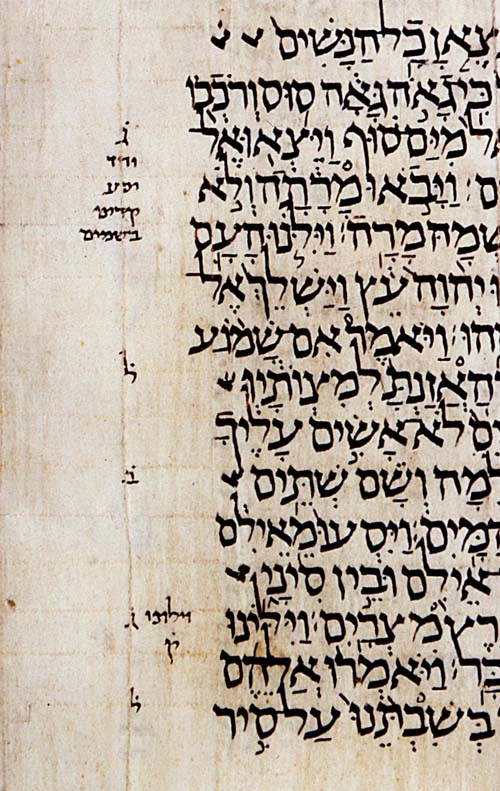 צְאןָ כָל הַנָּשִׁים
כִּי גָאֹה גָּאָה סוּס וְרֹכְבוֹ
ל מִיַּם סוּף וַיֵּצְאוּ אֶל
ם׃ וַיָּבֹאוּ מָרָתָה וְלֹא
שְׁמָהּ מָרָה׃ וַיִּלֹנוּ הָעָם
וּ יְהוָה עֵץ וַיַּשְׁלֵךְ אֶל
הוּ׃ וַיֹּאמֶר אִם שָׁמוֹעַ
הַאֲזַנְתָּ לְמִצְוֹתָיו
ים לֹא אָשִׂים עָלֶיךָ
למָה וְשָׁם שְׁתֵּים
הַמָּיִם׃ וַיִּסְעוּ מֵאֵילִם
אֵילִם וּבֵין סִינָי
רֶץ מִצְרָיִם׃ וַיִּלִּינוּ
בָּר׃ וַיֹּאמְרוּ אֲלֵהֶם
בְּשִׁבְתֵּנוּ עַל סִיר
ג
יסע
קדים
בשמים
ל
ב
וילונו ג
ק
ל